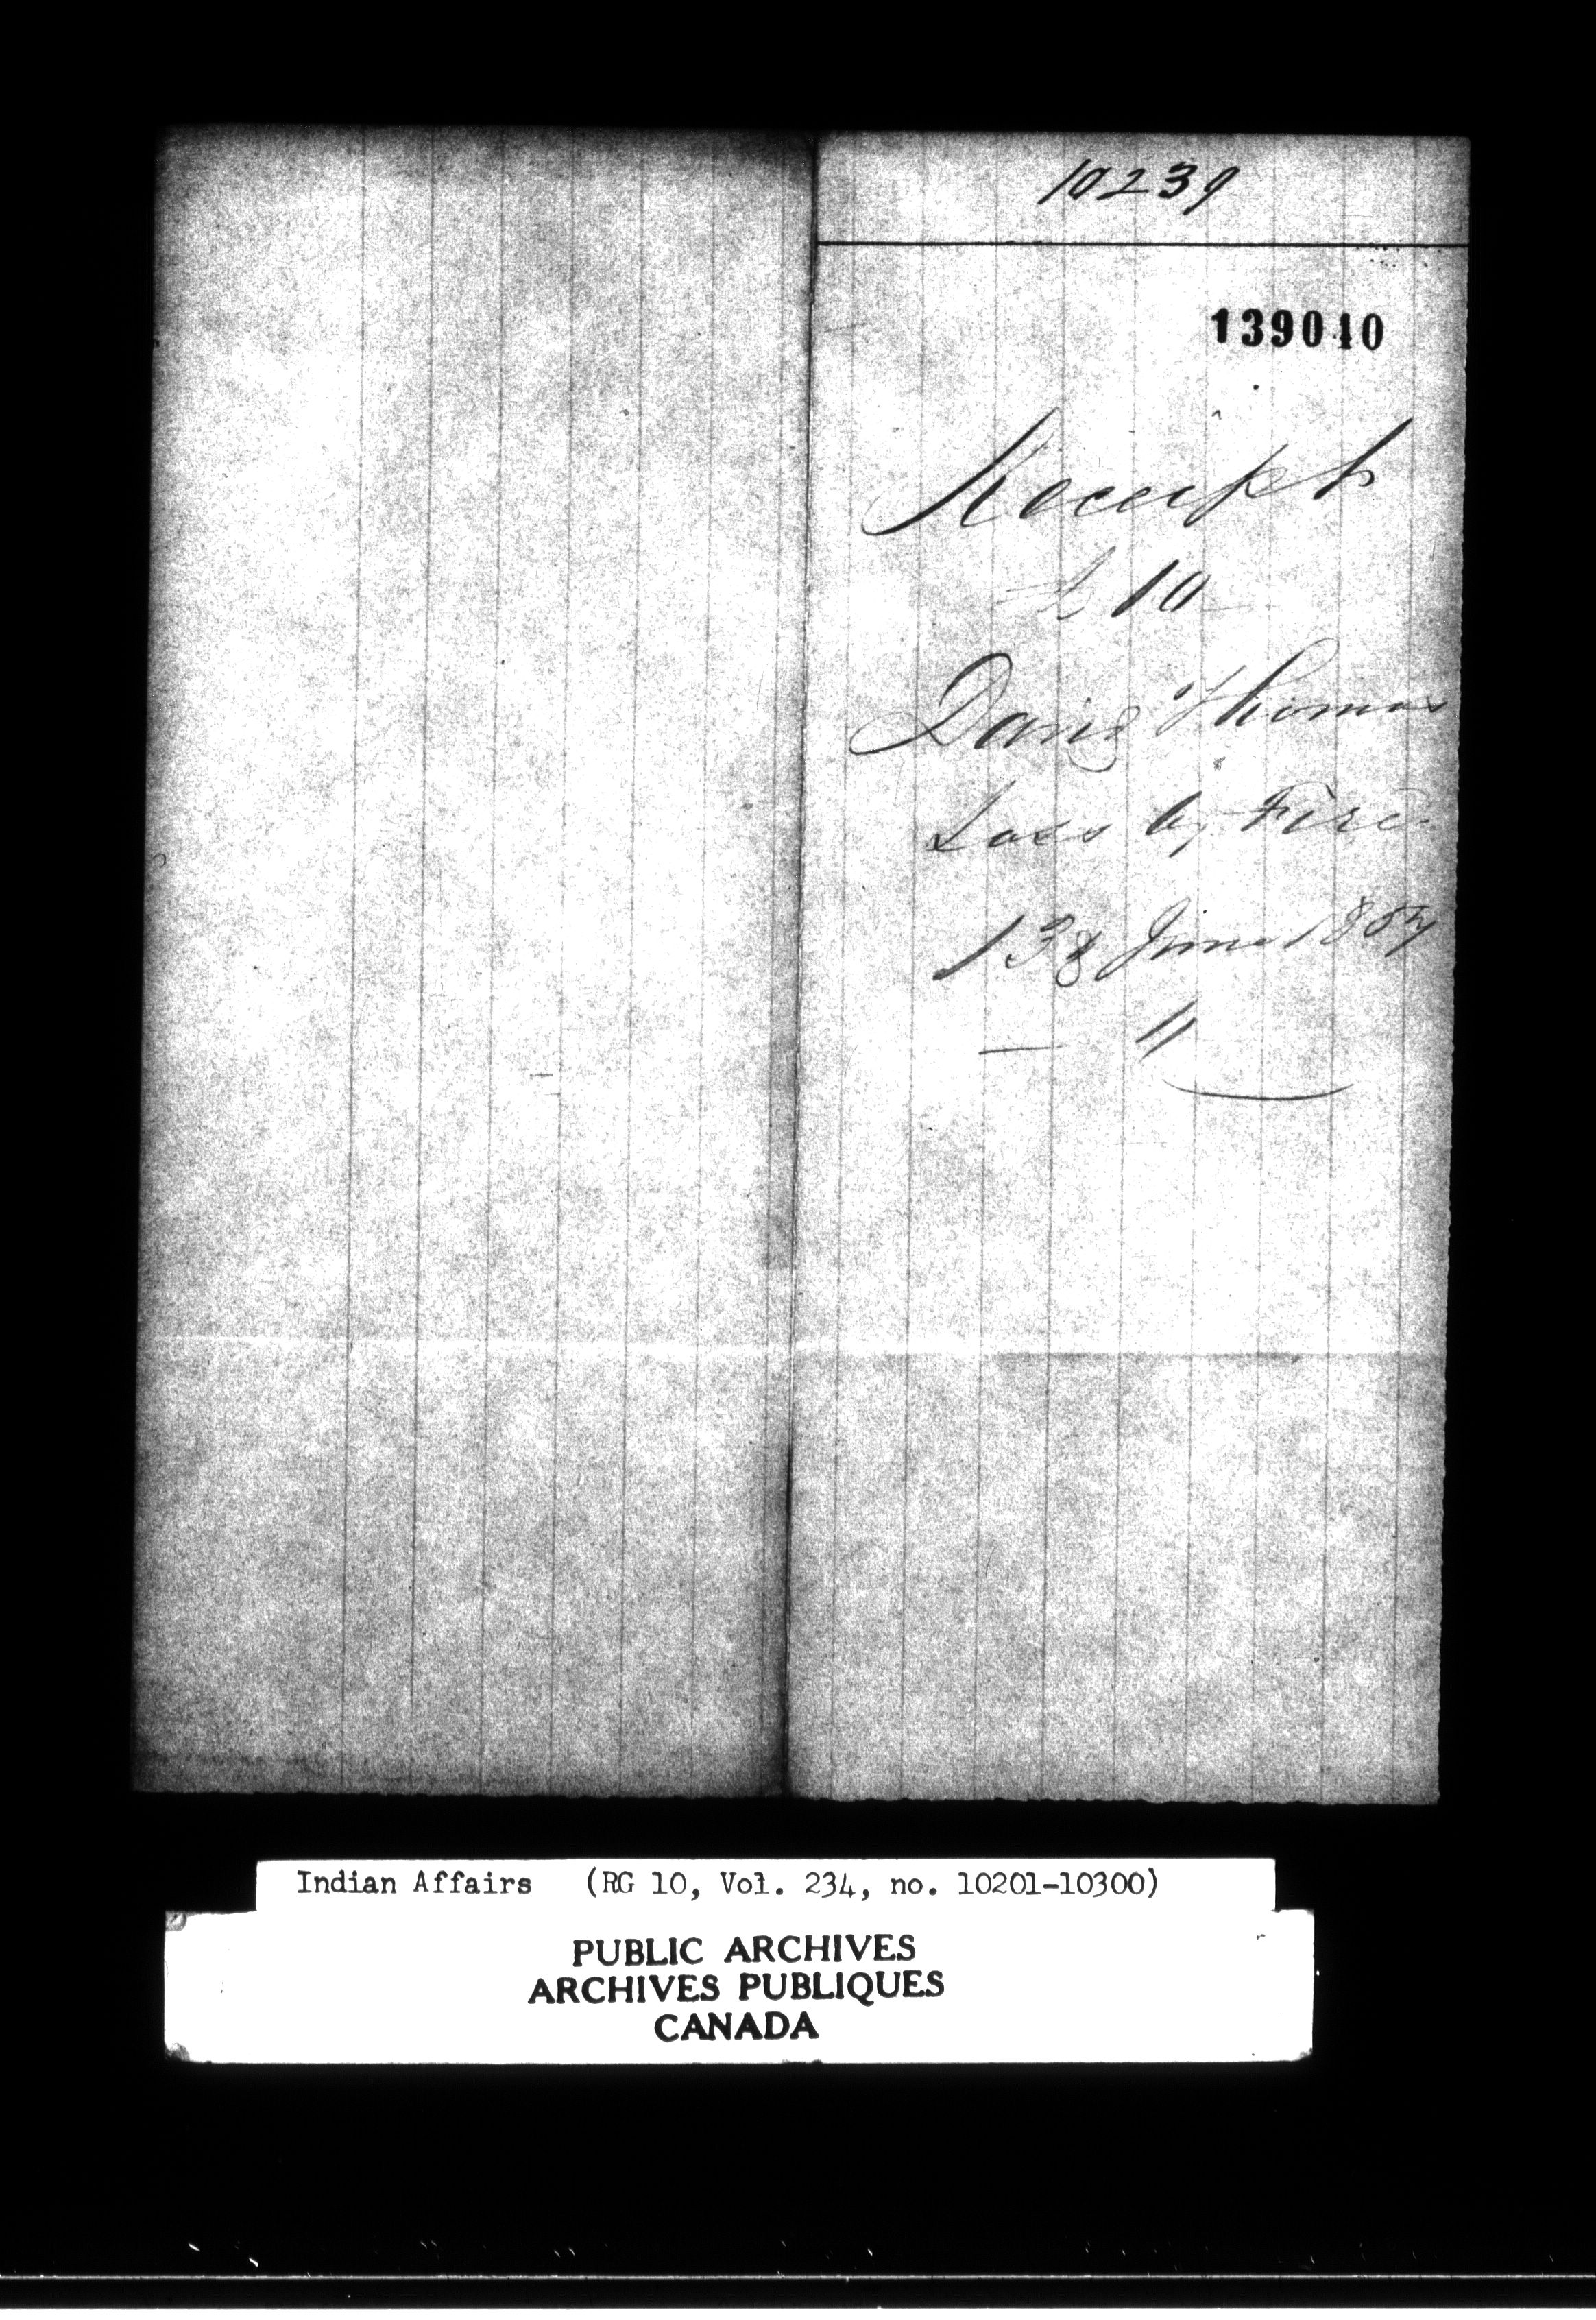 10239
139010
Receipt
10
David Thomas
Loss by Fire
13 June 1857
Indian Affairs (RG 10, Vol. 234, no. 10201-10300)
PUBLIC ARCHIVES
ARCHIVES PUBLIQUES
CANADA